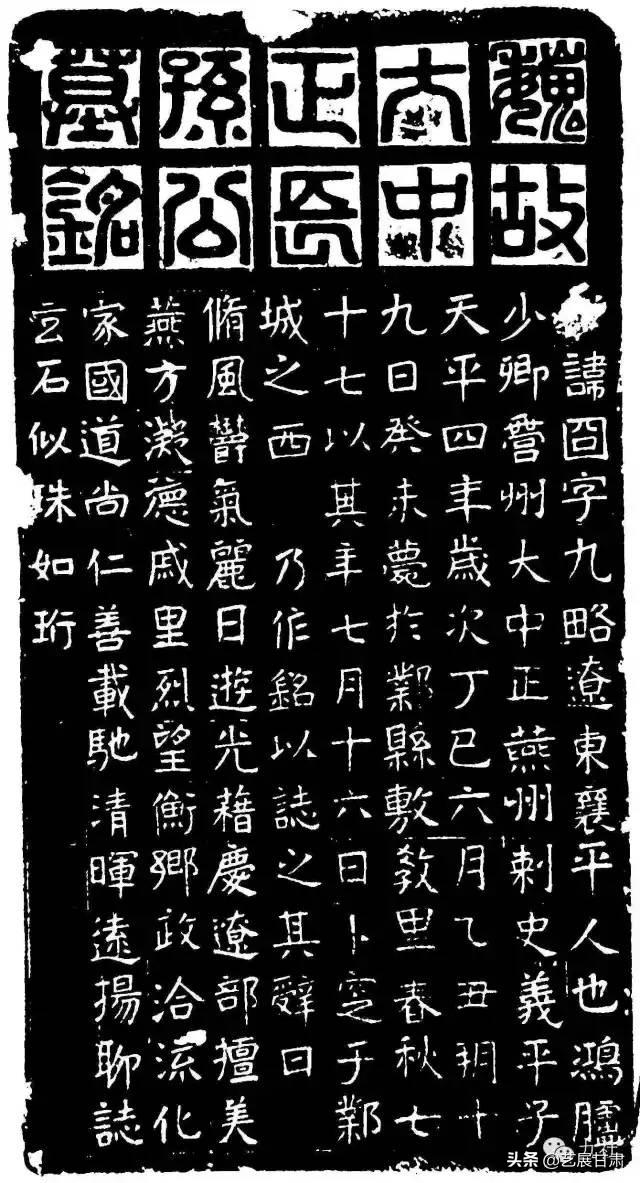 魏故
大中
正長
孫公
墓銘
諱囧字九略遼東襄平人也鴻臚
少卿營州大中正燕州刺史義平子
天平四年歲次丁巳六月乙丑朔十
九日癸未薨於鄴縣敷教里春秋七
十七以其年七月十六日卜窆于鄴
城之西 乃作銘以誌之其辭曰
脩風欝氣麗日遊光藉慶遼部擅美
燕方凝德戚里烈望衡鄉政洽流化
家國道尚仁善載馳清暉遠揚聊誌
玄石似珠如珩
头条 @艺展甘肃